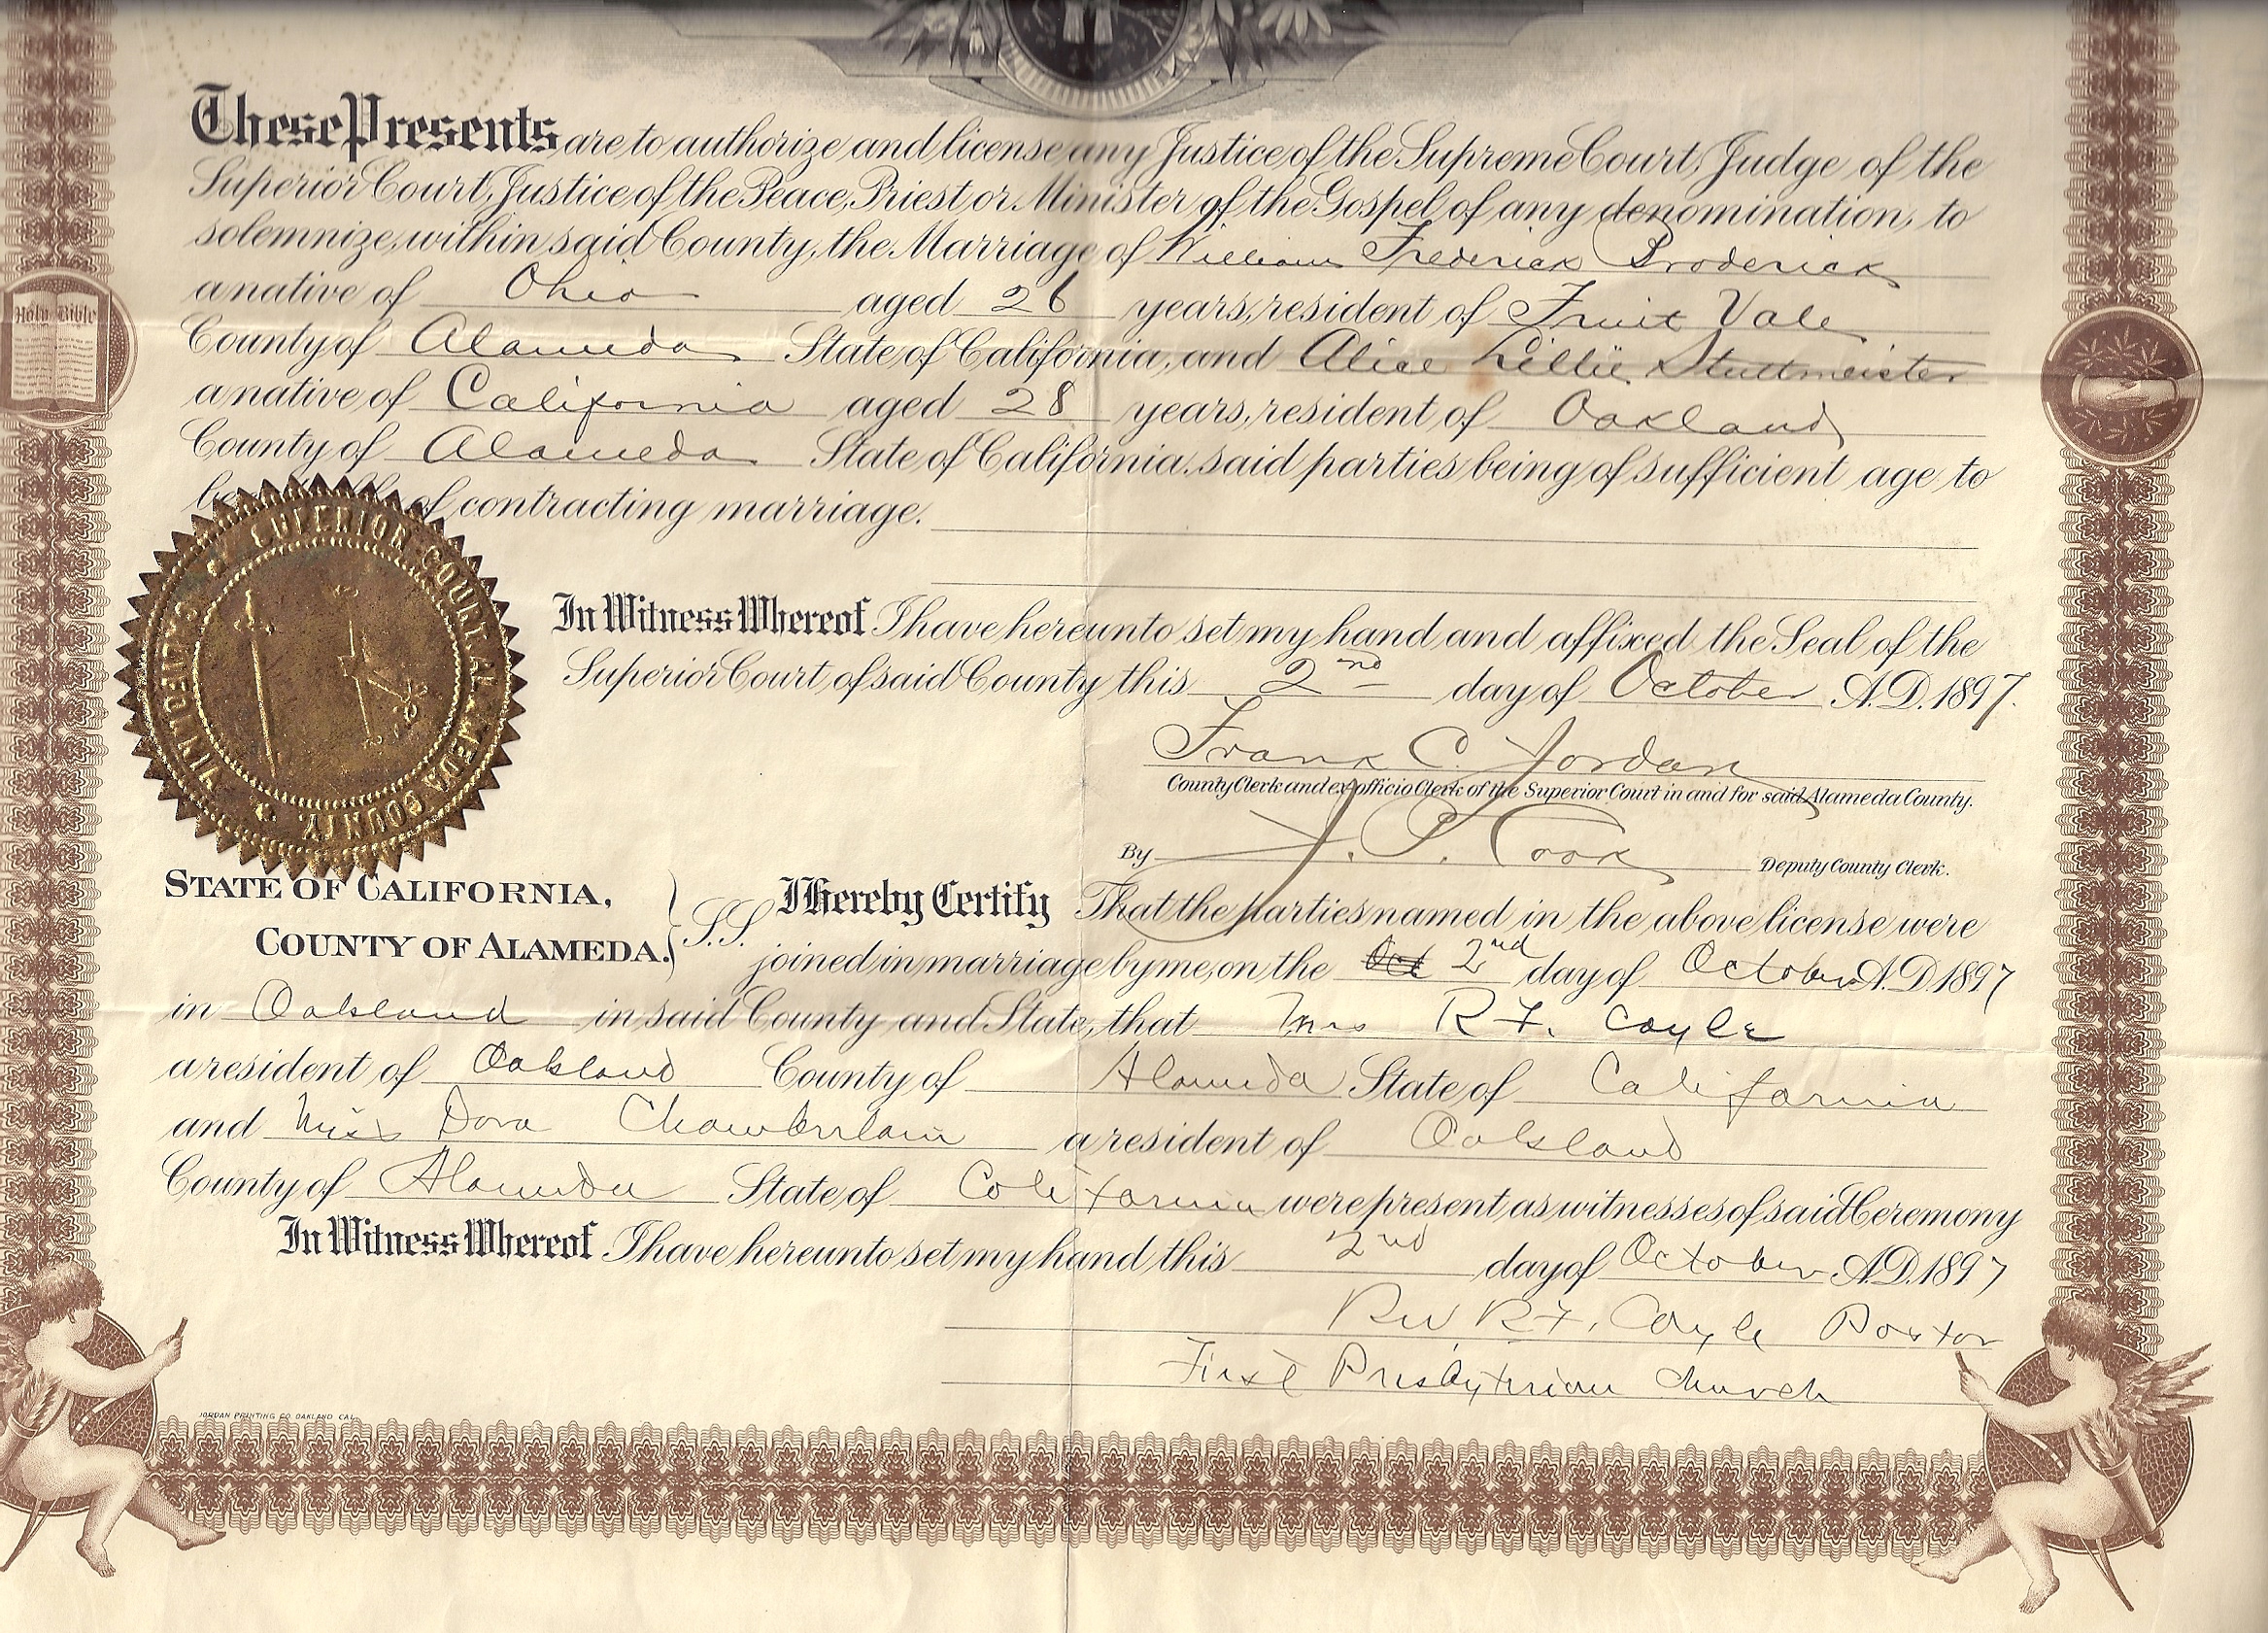 These Presents are to authorize and license any Justice of the Supreme Court, Judge of the
Superior Court, Justice of the Peace, Priest or Minister of the Gospel of any denomination, to
solemnize, within said County, the Marriage of William Frederick Broderick
a native of Ohio aged 26 years, resident of Fruit Vale
Holy Bible
County of Alameda State of California, and Alice Lillie Stuttmeister
a native of California aged 28 years, resident of Oakland
County of Alameda State of California, said parties being of sufficient age to
be of contracting marriage.
SUPERIOR COURT ALAMEDA COUNTY
In Witness Whereof I have hereunto set my hand and affixed the Seal of the
Superior Court of said County this 2nd day of October A.D. 1897.
Frank C. Jordan
County Clerk and ex-officio Clerk of the Superior Court in and for said Alameda County.
By J. P. Cook Deputy County Clerk.
STATE OF CALIFORNIA,
COUNTY OF ALAMEDA. } S.S.
I Hereby Certify That the parties named in the above license were
joined in marriage by me, on the Oct 2nd day of October A.D. 1897
in Oakland in said County and State, that Mrs R.F. Coyle
a resident of Oakland County of Alameda State of California
and Miss Dora Chamberlain a resident of Oakland
County of Alameda State of California were present as witnesses of said Ceremony
In Witness Whereof I have hereunto set my hand this 2nd day of October A.D. 1897
Rev. R.F. Coyle Pastor
First Presbyterian Church
JORDAN PRINTING CO OAKLAND CAL